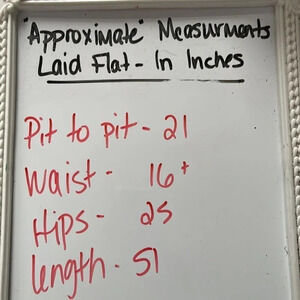 "Approximate" Measurments
Laid Flat - In Inches
Pit to pit - 21
Waist - 16+
Hips - 25
length - 51